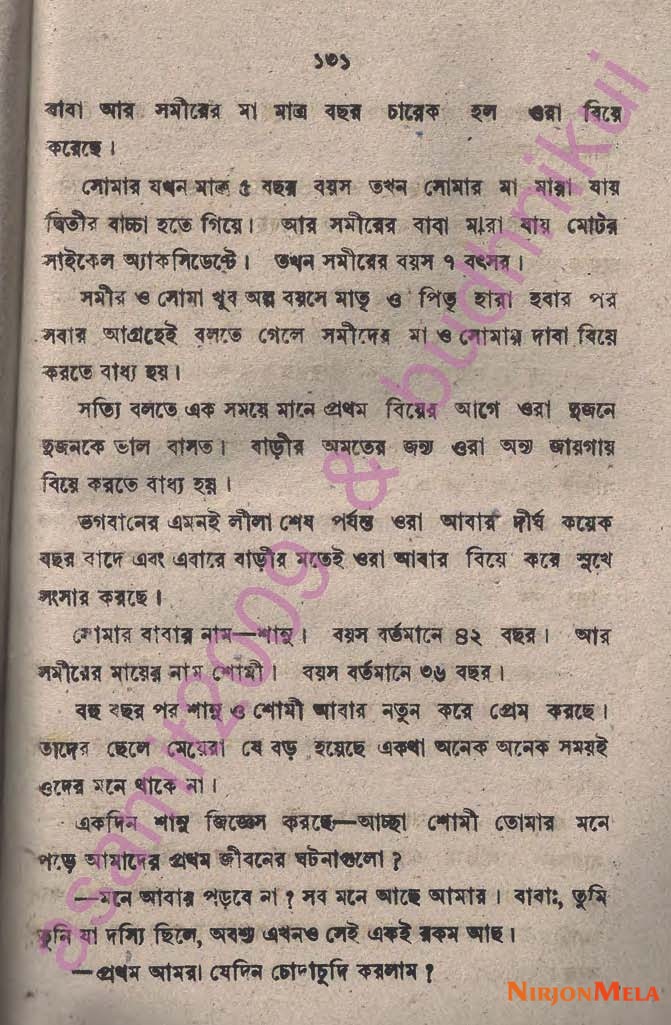 ১৩১
বাবা আর সমীরের মা মাত্র বছর চারেক হল ওরা বিয়ে
করেছে।
সোমার যখন মাত্র ৫ বছর বয়স তখন সোমার মা মারা যায়
দ্বিতীর বাচ্চা হতে গিয়ে। আর সমীরের বাবা মারা যায় মোটর
সাইকেল অ্যাকসিডেন্টে। তখন সমীরের বয়স ৭ বৎসর।
সমীর ও সোমা খুব অল্প বয়সে মাতৃ ও পিতৃ হারা হবার পর
সবার আগ্রহেই বলতে গেলে সমীদের মা ও সোমার দাবা বিয়ে
করতে বাধ্য হয়।
সত্যি বলতে এক সময়ে মানে প্রথম বিয়ের আগে ওরা দুজনে
দুজনকে ভাল বাসত। বাড়ীর অমতের জন্য ওরা অন্য জায়গায়
বিয়ে করতে বাধ্য হয়।
ভগবানের এমনই লীলা শেষ পর্যন্ত ওরা আবার দীর্ঘ কয়েক
বছর বাদে এবং এবারে বাড়ীর মতেই ওরা আবার বিয়ে করে সুখে
সংসার করছে।
সোমার বাবার নাম—শানু। বয়স বর্তমানে ৪২ বছর। আর
সমীরের মায়ের নাম শোমী। বয়স বর্তমানে ৩৬ বছর।
বহু বছর পর শানু ও শোমী আবার নতুন করে প্রেম করছে।
তাদের ছেলে মেয়েরা যে বড় হয়েছে একথা অনেক অনেক সময়ই
ওদের মনে থাকে না।
একদিন শানু জিজ্ঞেস করছে—আচ্ছা শোমী তোমার মনে
পড়ে আমাদের প্রথম জীবনের ঘটনাগুলো?
—মনে আবার পড়বে না? সব মনে আছে আমার। বাবাঃ, তুমি
তুনি যা দস্যি ছিলে, অবশ্য এখনও সেই একই রকম আছ।
—প্রথম আমরা যেদিন চোদাচুদি করলাম?
esamir2009 & budhnikui
NIRJONMELA